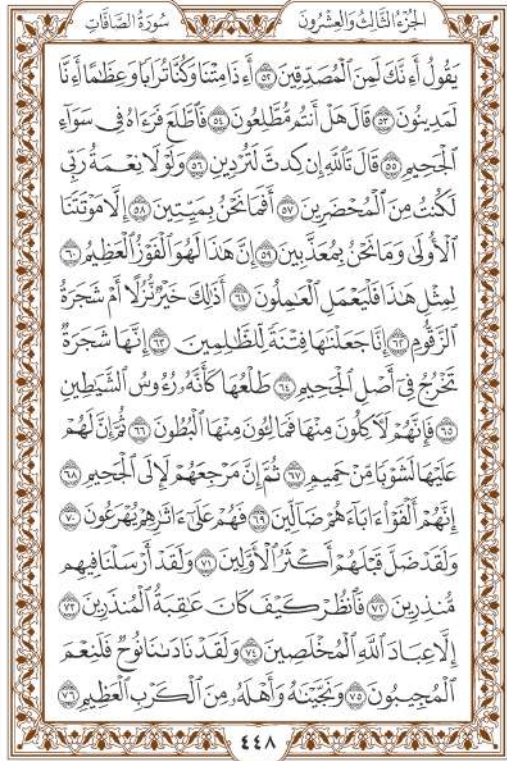 الجُزْءُ الثَّالِثُ وَالعِشْرُونَ سُورَةُ الصَّافَّاتِ
يَقُولُ أَءِنَّكَ لَمِنَ ٱلْمُصَدِّقِينَ ٥٢ أَءِذَا مِتْنَا وَكُنَّا تُرَابًا وَعِظَٰمًا أَءِنَّا
لَمَدِينُونَ ٥٣ قَالَ هَلْ أَنتُم مُّطَّلِعُونَ ٥٤ فَٱطَّلَعَ فَرَءَاهُ فِي سَوَآءِ
ٱلْجَحِيمِ ٥٥ قَالَ تَٱللَّهِ إِن كِدتَّ لَتُرْدِينِ ٥٦ وَلَوْلَا نِعْمَةُ رَبِّي
لَكُنتُ مِنَ ٱلْمُحْضَرِينَ ٥٧ أَفَمَا نَحْنُ بِمَيِّتِينَ ٥٨ إِلَّا مَوْتَتَنَا
ٱلْأُولَىٰ وَمَا نَحْنُ بِمُعَذَّبِينَ ٥٩ إِنَّ هَٰذَا لَهُوَ ٱلْفَوْزُ ٱلْعَظِيمُ ٦٠
لِمِثْلِ هَٰذَا فَلْيَعْمَلِ ٱلْعَٰمِلُونَ ٦١ أَذَٰلِكَ خَيْرٌ نُّزُلًا أَمْ شَجَرَةُ
ٱلزَّقُّومِ ٦٢ إِنَّا جَعَلْنَٰهَا فِتْنَةً لِّلظَّٰلِمِينَ ٦٣ إِنَّهَا شَجَرَةٌ
تَخْرُجُ فِيٓ أَصْلِ ٱلْجَحِيمِ ٦٤ طَلْعُهَا كَأَنَّهُۥ رُءُوسُ ٱلشَّيَٰطِينِ
٦٥ فَإِنَّهُمْ لَأٓكِلُونَ مِنْهَا فَمَالِـُٔونَ مِنْهَا ٱلْبُطُونَ ٦٦ ثُمَّ إِنَّ لَهُمْ
عَلَيْهَا لَشَوْبًا مِّنْ حَمِيمٍ ٦٧ ثُمَّ إِنَّ مَرْجِعَهُمْ لَإِلَى ٱلْجَحِيمِ ٦٨
إِنَّهُمْ أَلْفَوْا۟ ءَابَآءَهُمْ ضَآلِّينَ ٦٩ فَهُمْ عَلَىٰٓ ءَاثَٰرِهِمْ يُهْرَعُونَ ٧٠
وَلَقَدْ ضَلَّ قَبْلَهُمْ أَكْثَرُ ٱلْأَوَّلِينَ ٧١ وَلَقَدْ أَرْسَلْنَا فِيهِم
مُّنذِرِينَ ٧٢ فَٱنظُرْ كَيْفَ كَانَ عَٰقِبَةُ ٱلْمُنذَرِينَ ٧٣
إِلَّا عِبَادَ ٱللَّهِ ٱلْمُخْلَصِينَ ٧٤ وَلَقَدْ نَادَىٰنَا نُوحٌ فَلَنِعْمَ
ٱلْمُجِيبُونَ ٧٥ وَنَجَّيْنَٰهُ وَأَهْلَهُۥ مِنَ ٱلْكَرْبِ ٱلْعَظِيمِ ٧٦
٤٤٨